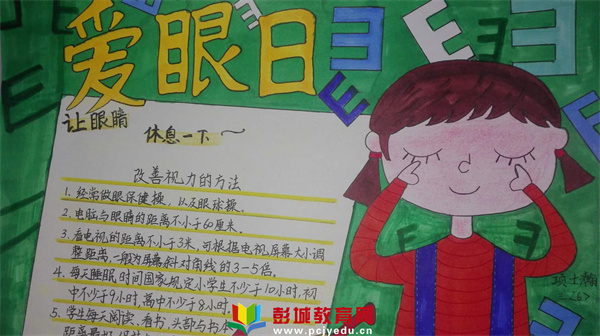 爱眼日
让眼睛
休息一下～
改善视力的方法
1. 经常做眼保健操，以及眼球操。
2. 电脑与眼睛的距离不小于60厘米。
3. 看电视的距离不小于3米，可根据电视屏幕大小调
整距离，一般为屏幕斜对角线的3-5倍。
4. 每天睡眠时间国家规定小学生不少于10小时，初
中不少于9小时，高中不少于8小时。
5. 学生每天阅读、看书，头部与书本
彭城教育网
www.pcjyedu.cn